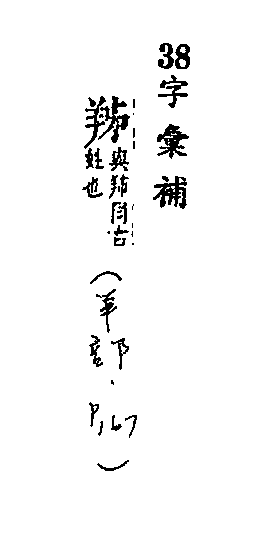 38字彙補
與同古
姓也
(羊部、P167)